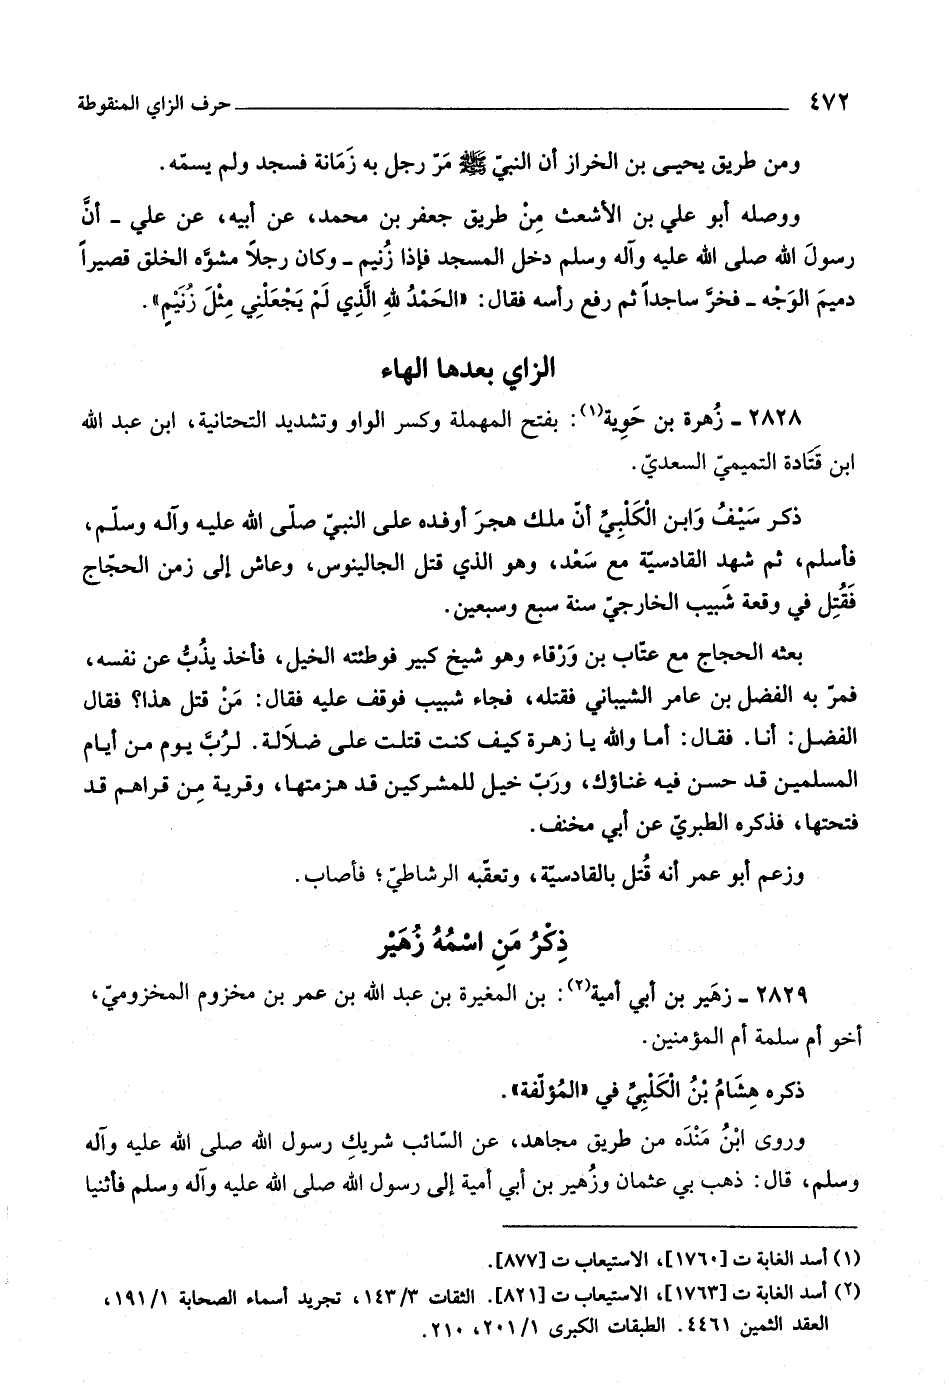 ٤٧٢ ــــــــــــــــــــــــــــــــــــــــ حرف الزاي المنقوطة
ومن طريق يحيى بن الخراز أن النبيّ ﷺ مَرّ رجل به زَمَانة فسجد ولم يسمّه.
ووصله أبو علي بن الأشعث مِنْ طريق جعفر بن محمد، عن أبيه، عن علي ـ أنَّ
رسولَ الله صلى الله عليه وآله وسلم دخل المسجد فإذا زُنيم ـ وكان رجلاً مشوَّه الخلق قصيراً
دميمَ الوَجْه ـ فخرَّ ساجداً ثم رفع رأسه فقال: «الحَمْدُ للهِ الَّذِي لَمْ يَجْعَلْنِي مِثْلَ زُنَيْمٍ».
الزاي بعدها الهاء
٢٨٢٨ ـ زُهرة بن حَوِية(١): بفتح المهملة وكسر الواو وتشديد التحتانية، ابن عبد الله
ابن قَتَادة التميميّ السعديّ.
ذكر سَيْفُ وَابن الْكَلْبِيِّ أنّ ملك هجرَ أوفده على النبيّ صلّى الله عليه وآله وسلّم،
فأسلم، ثم شهد القادسيّة مع سَعْد، وهو الذي قتل الجالينوس، وعاش إلى زمن الحجّاج
فَقُتِل في وقعة شَبيب الخارجيّ سنة سبع وسبعين.
بعثه الحجاج مع عتّاب بن وَرْقاء وهو شيخ كبير فوطئته الخيل، فأخذ يذُبُّ عن نفسه،
فمرّ به الفضل بن عامر الشيباني فقتله، فجاء شبيب فوقف عليه فقال: مَنْ قتل هذا؟ فقال
الفضل: أنا. فقال: أما والله يا زهرة كيف كنت قتلت على ضلالة. لرُبَّ يوم من أيام
المسلمين قد حسن فيه غناؤك، ورَبّ خيل للمشركين قد هزمتها، وقرية مِن قراهم قد
فتحتها، فذكره الطبريّ عن أبي مخنف.
وزعم أبو عمر أنه قُتل بالقادسيّة، وتعقّبه الرشاطيّ؛ فأصاب.
ذِكْرُ مَنِ اسْمُهُ زُهَيْر
٢٨٢٩ ـ زهَير بن أبي أمية(٢): بن المغيرة بن عبد الله بن عمر بن مخزوم المخزوميّ،
أخو أم سلمة أم المؤمنين.
ذكره هِشَامُ بْنُ الْكَلْبِيِّ في «المُؤلّفة».
وروى ابْنُ مَنْدَه من طريق مجاهد، عن السّائب شريكِ رسول الله صلى الله عليه وآله
وسلم، قال: ذهب بي عثمان وزُهير بن أبي أمية إلى رسول الله صلى الله عليه وآله وسلم فأثنيا
(١) أسد الغابة ت [١٧٦٠]، الاستيعاب ت [٨٧٧].
(٢) أسد الغابة ت [١٧٦٣]، الاستيعاب ت [٨٢١]. الثقات ١٤٣/٣، تجريد أسماء الصحابة ١٩١/١،
العقد الثمين ٤٤٦١. الطبقات الكبرى ٢٠١/١، ٢١٠.